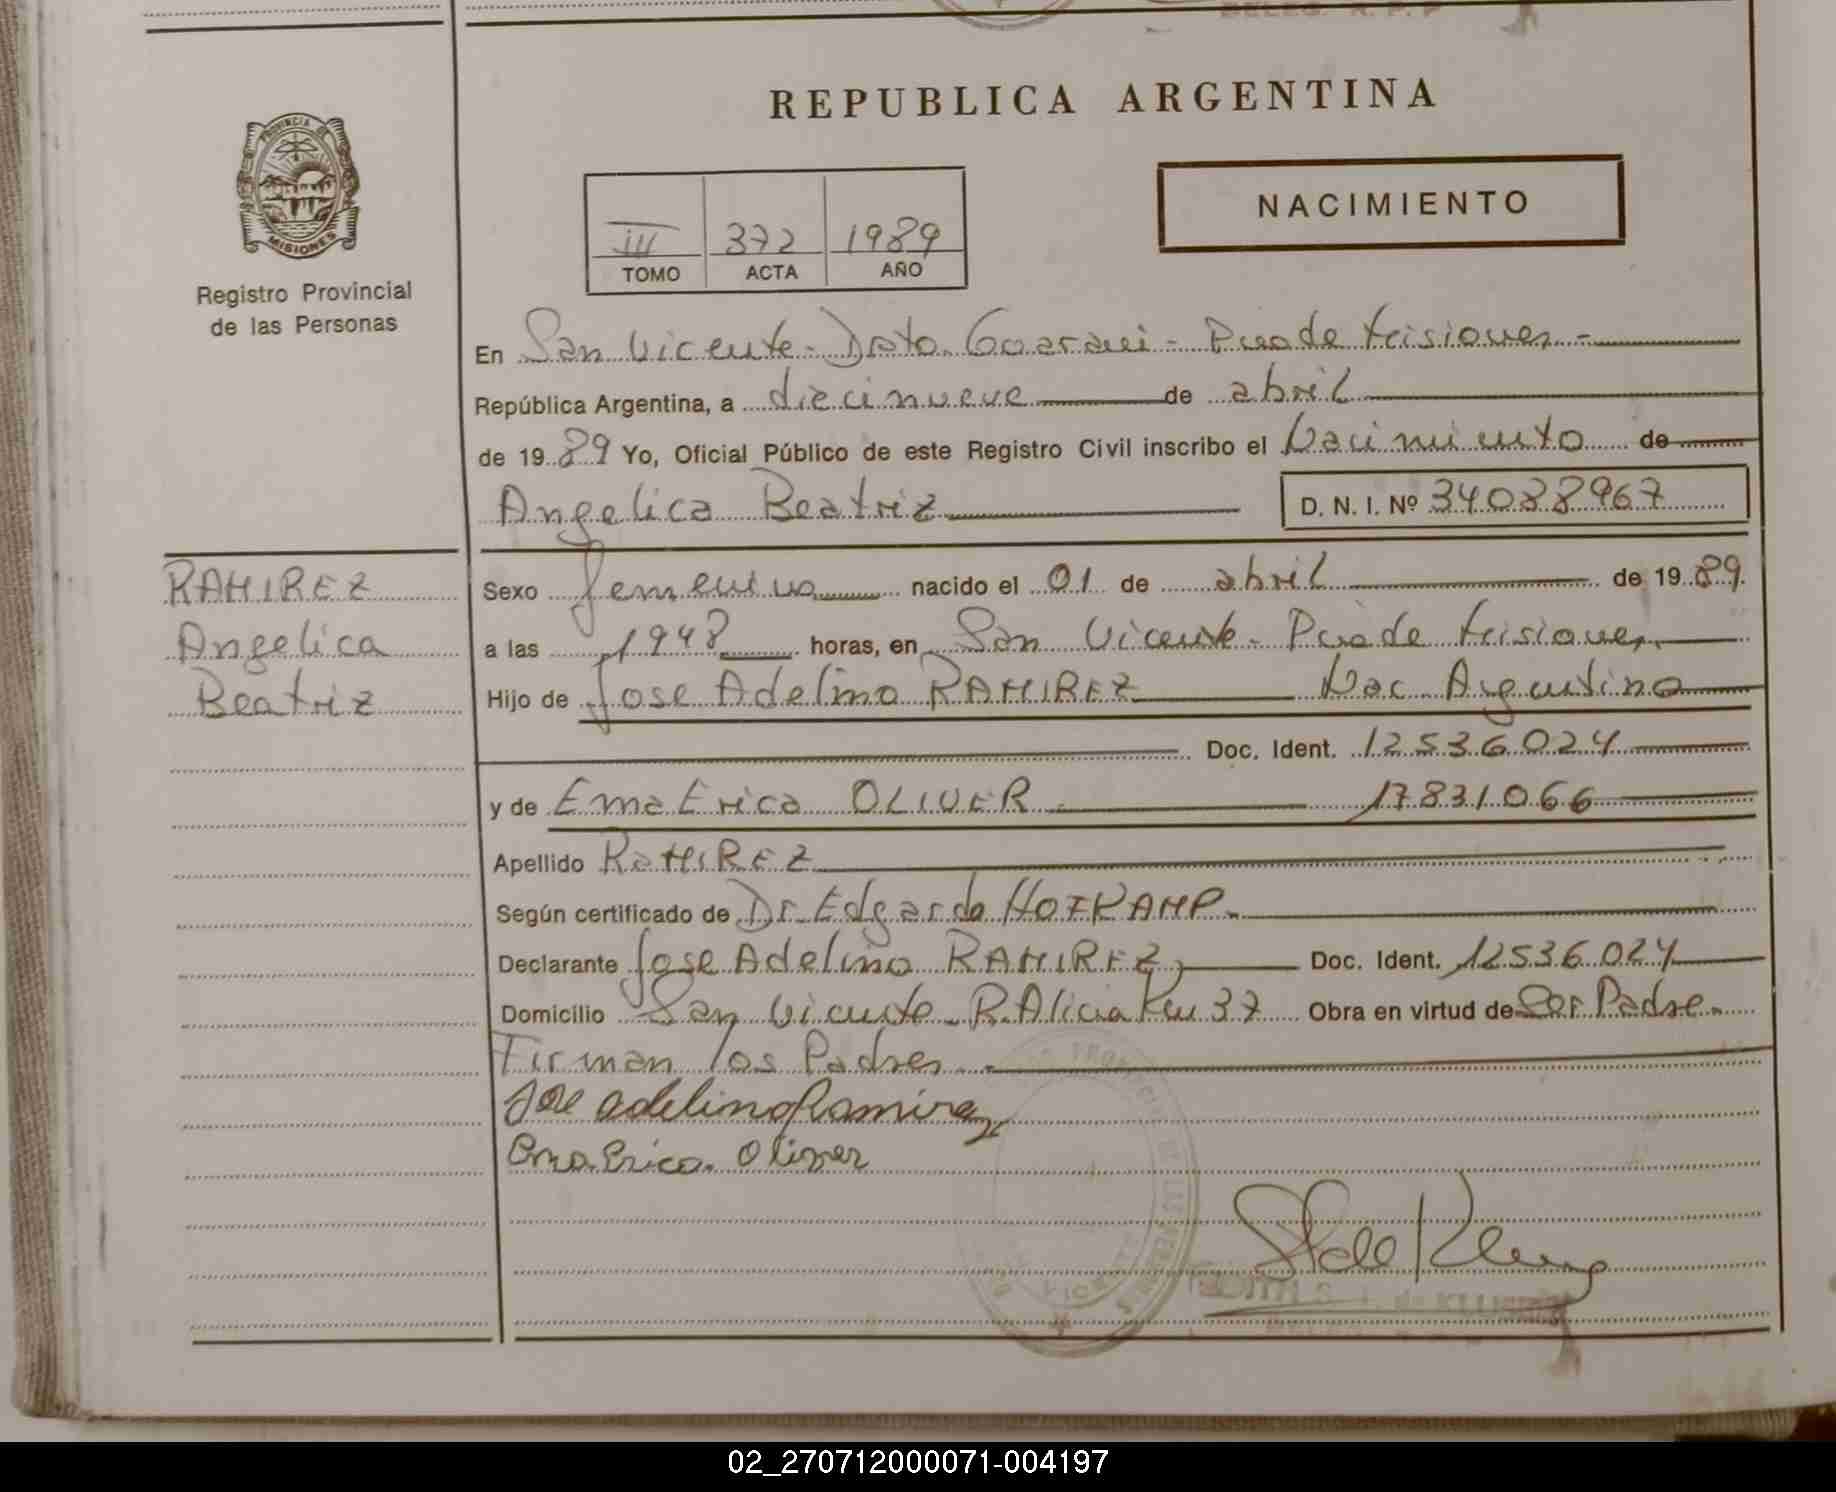 REPUBLICA ARGENTINA
PROVINCIA DE
MISIONES
Registro Provincial
de las Personas
NACIMIENTO
III 372 1989
TOMO ACTA AÑO
En San Vicente - Dpto. Guarani - Pcia de Misiones -
República Argentina, a diecinueve de abril
de 1989 Yo, Oficial Público de este Registro Civil inscribo el Nacimiento de
Angelica Beatriz D. N. I. Nº 34088967
RAMIREZ
Angelica
Beatriz
Sexo femenino nacido el 01 de abril de 1989.
a las 1948 horas, en San Vicente - Pcia de Misiones.
Hijo de Jose Adelino RAMIREZ Nac. Argentino
Doc. Ident. 12536024
y de Ema Erica OLIVER 17831066
Apellido RAMIREZ
Según certificado de Dr. Edgardo HOFKAMP.
Declarante Jose Adelino RAMIREZ Doc. Ident. 12536024
Domicilio San Vicente - R. Alicia Km 37 Obra en virtud de Ser Padre.
Firman los Padres.
Jose adelino Ramirez
Ema Erica Oliver
02_270712000071-004197